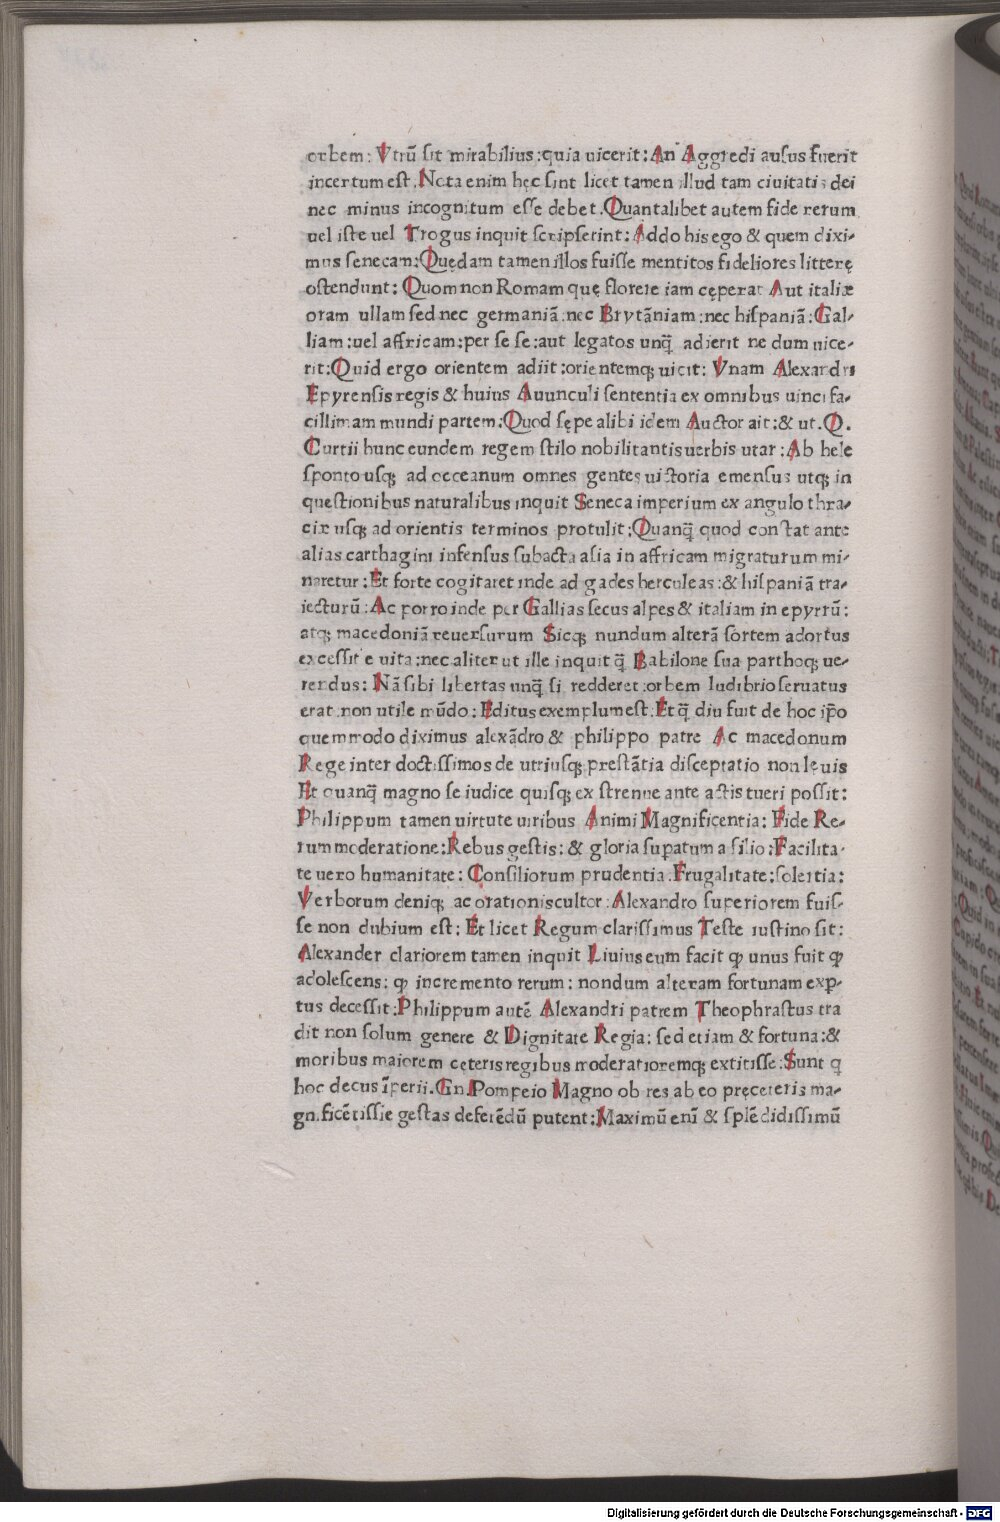 orbem: Vtrũ sit mirabilius:quia uicerit: An Aggredi ausus fuerit
incertum est. Nota enim hęc sint licet tamen illud tam ciuitatis dei
nec minus incognitum esse debet. Quantalibet autem fide rerum
uel iste uel Trogus inquit scripserint: Addo his ego & quem dixi-
mus senecam: Quędam tamen illos fuisse mentitos fideliores litterę
ostendunt: Quom non Romam quę florere iam cęperat Aut italiæ
oram ullam sed nec germaniã:nec Brytãniam:nec hispaniã: Gal-
liam:uel affricam:per se se:aut legatos unq̃ adierit ne dum uice-
rit: Quid ergo orientem adiit:orientemq; uicit: Vnam Alexandri
Epyrensis regis & huius Auunculi sententia ex omnibus uinci fa-
cillimam mundi partem: Quod sępe alibi idem Auctor ait:& ut. Q.
Curtii hunc eundem regem stilo nobilitantis uerbis utar: Ab hele
sponto usq; ad occeanum omnes gentes uictoria emensus utq; in
questionibus naturalibus inquit Seneca imperium ex angulo thra-
ciæ usq; ad orientis terminos protulit: Quanq̃ quod constat ante
alias carthagini infensus subacta asia in affricam migraturum mi-
naretur: Et forte cogitaret inde ad gades herculeas:& hispaniã tra-
iecturũ: Ac porro inde per Gallias secus alpes & italiam in epyrrũ:
atq; macedoniã reuersurum Sicq; nundum alterã sortem adortus
excessit e uita:nec aliter ut ille inquit q̃ Babilone sua parthoq; ue-
rendus: Nã sibi libertas unq̃ si redderet:orbem ludibrio seruatus
erat.non utile mũdo: Editus exemplum est. Et q̃ diu fuit de hoc ip̃o
quemmodo diximus alexãdro & philippo patre Ac macedonum
Rege inter doctissimos de utriusq; prestãtia disceptatio non leuis
Et quanq̃ magno se iudice quisq; ex strenue ante actis tueri possit:
Philippum tamen uirtute uiribus Animi Magnificentia: Fide Re-
rum moderatione: Rebus gestis: & gloria supatum a filio: Facilita-
te uero humanitate: Consiliorum prudentia. Frugalitate:solertia:
Verborum deniq; ac orationis cultor: Alexandro superiorem fuis-
se non dubium est: Et licet Regum clarissimus Teste iustino sit:
Alexander clariorem tamen inquit Liuius eum facit ꝙ unus fuit ꝙ
adolescens: ꝙ incremento rerum: nondum alteram fortunam exp-
tus decessit: Philippum autẽ Alexandri patrem Theophrastus tra
dit non solum genere & Dignitate Regia: sed etiam & fortuna:&
moribus maiorem cęteris regibus moderatioremq; extitisse: Sunt q
hoc decus ĩperii. Gn. Pompeio Magno ob res ab eo pręceteris ma-
gnificẽtissie gestas deferẽdũ putent: Maximũ enĩ & splẽdidissimũ
Digitalisierung gefördert durch die Deutsche Forschungsgemeinschaft - DFG